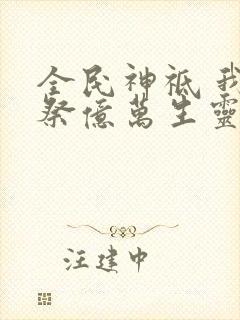 全民神祇 我
祭億萬生靈
汪建中